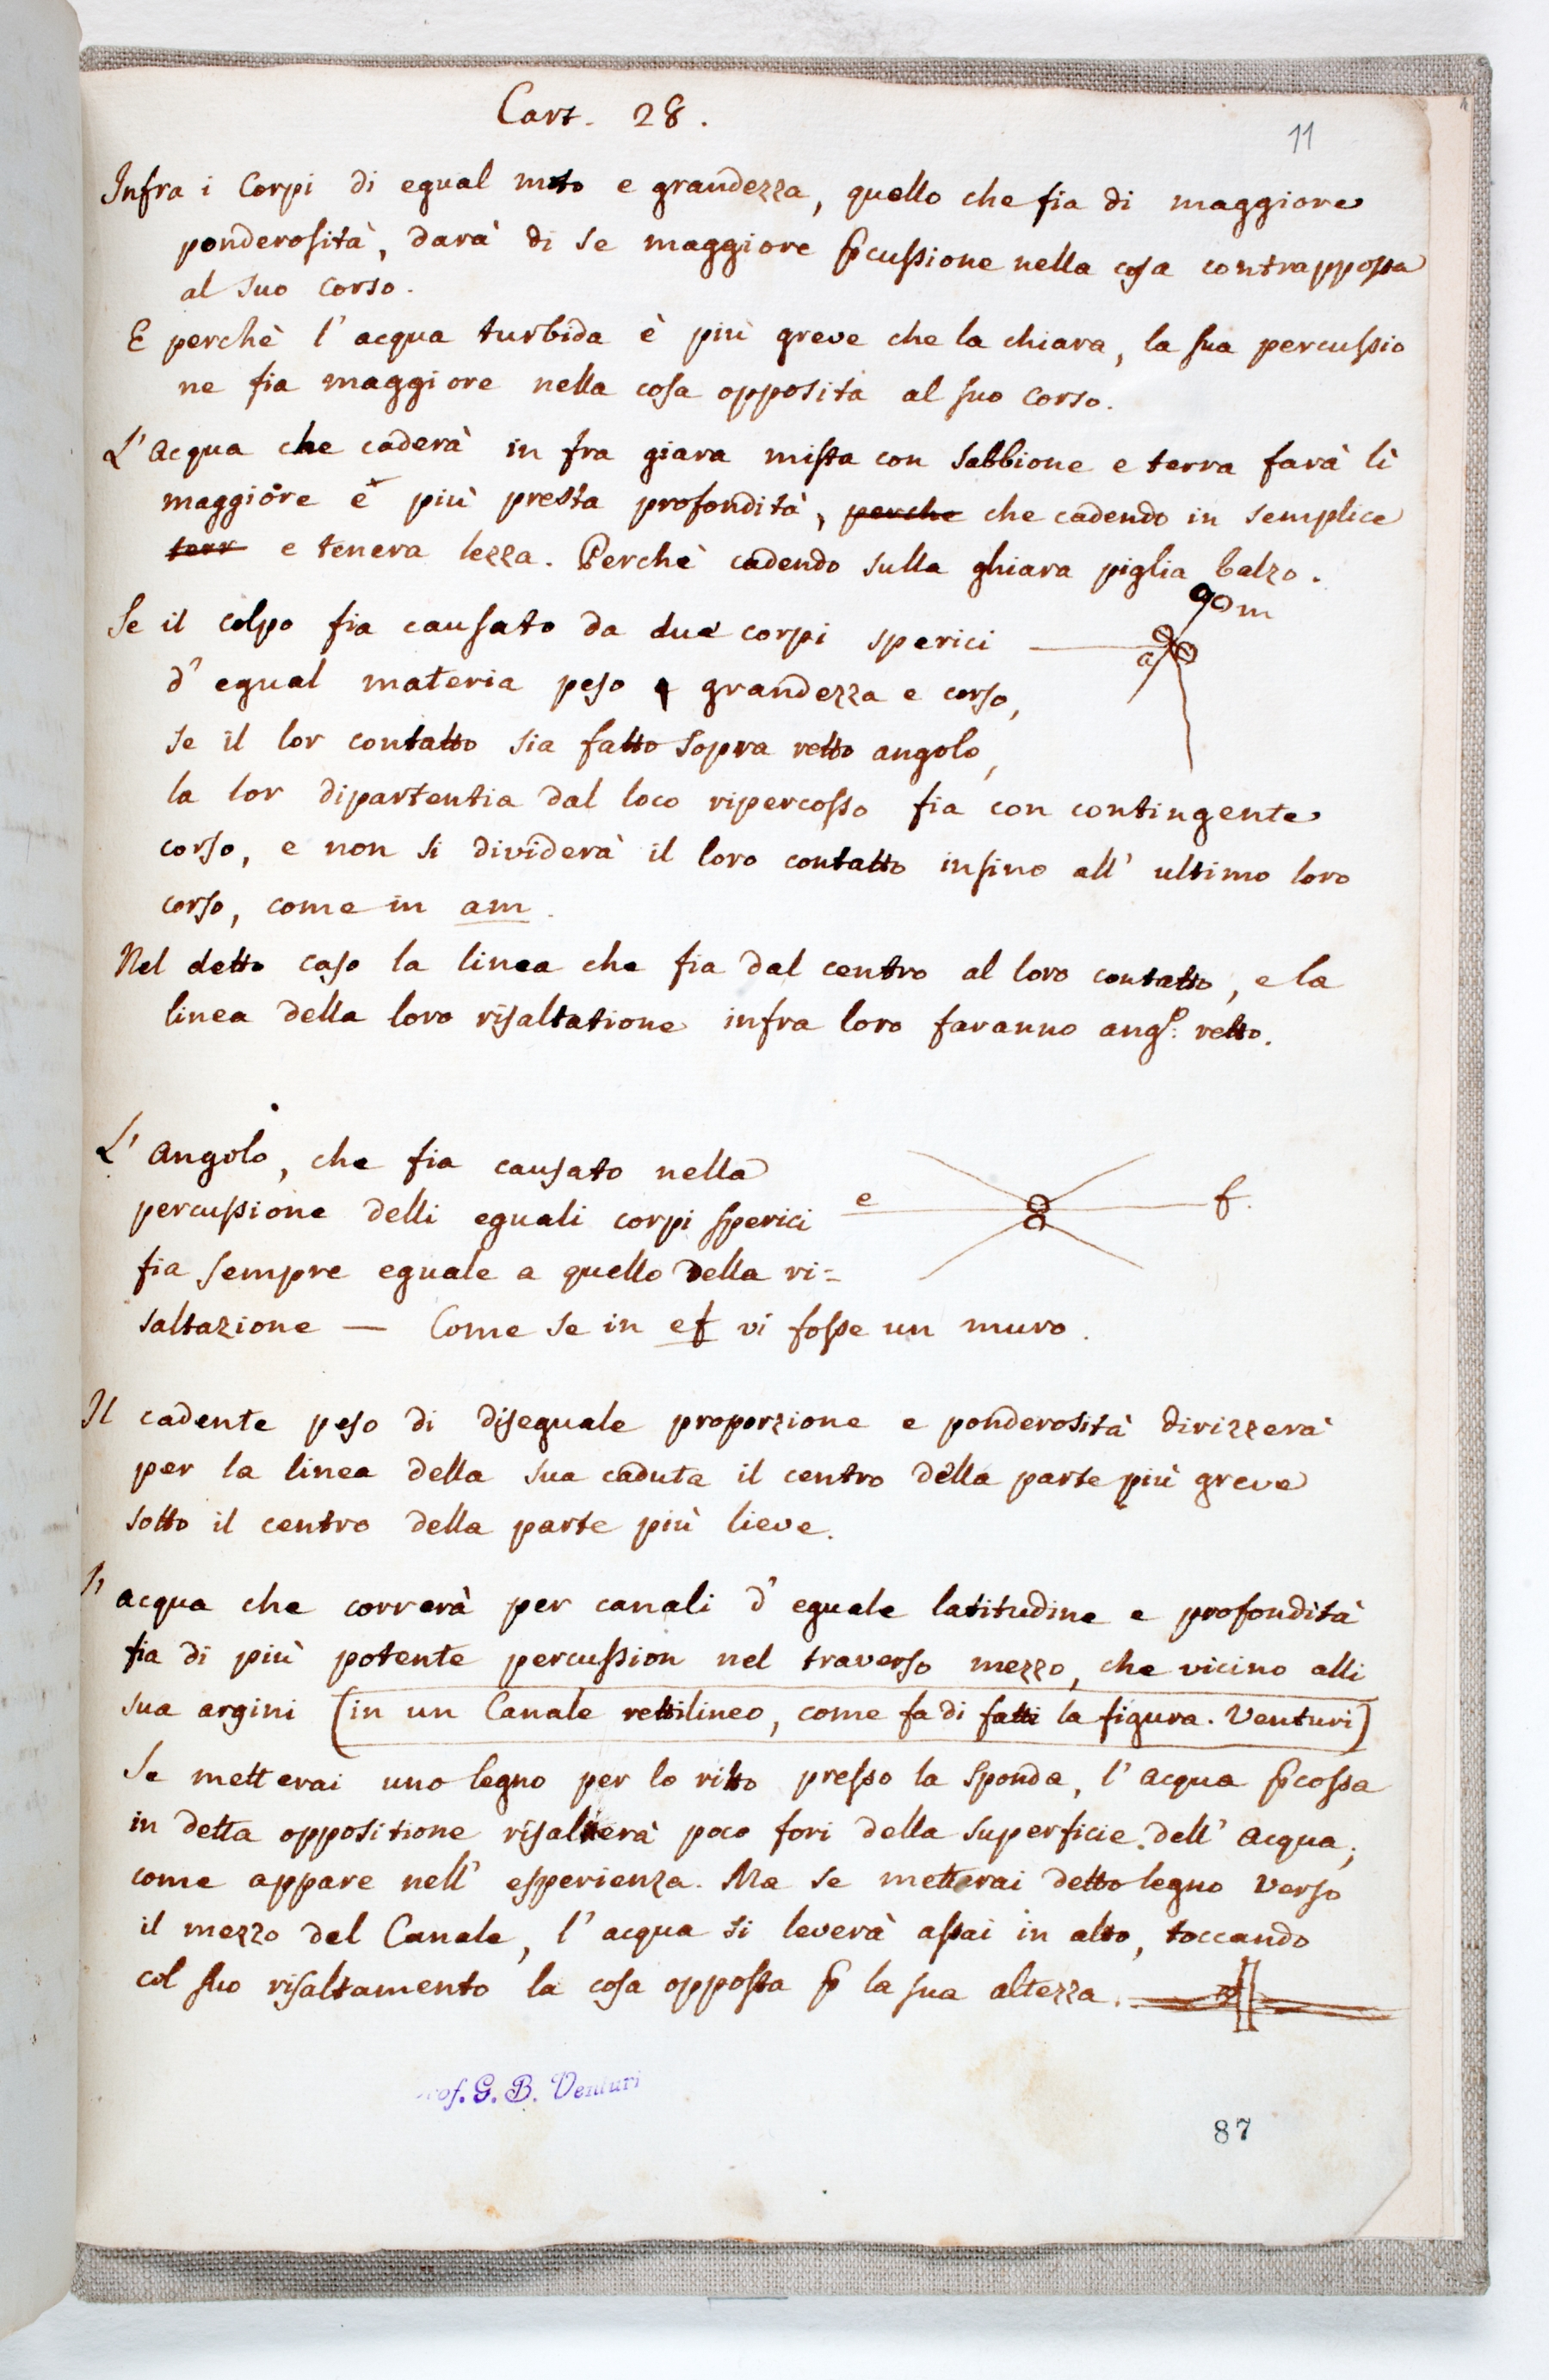 Cart. 28.
11
Infra i Corpi di egual moto e grandezza, quello che fia di maggiore
ponderosità, darà di se maggiore ꝑcussione nella cosa contrapposta
al suo corso.
E perchè l'acqua turbida è più greve che la chiara, la sua percussio
ne fia maggiore nella cosa opposita al suo corso.
L'acqua che caderà in fra giara mista con sabbione e terra farà lì
maggiore e più presta profondità, perche che cadendo in semplice
terr e tenera lezza. Perchè cadendo sulla ghiara piglia balzo.
m
Se il colpo fia causato da due corpi sperici
a
d'egual materia peso grandezza e corso,
se il lor contatto sia fatto sopra retto angolo,
la lor dipartentia dal loco ripercosso fia con contingente
corso, e non si dividerà il loro contatto insino all'ultimo loro
corso, come in am.
Nel detto caso la linea che fia dal centro al loro contatto, e la
linea della loro risaltatione infra loro faranno angº: retto.
L'angolo, che fia causato nella
percussione delli eguali corpi sperici
e f.
fia sempre eguale a quello della ri=
saltazione — Come se in ef vi fosse un muro.
Il cadente peso di diseguale proporzione e ponderosità dirizzerà
per la linea della sua caduta il centro della parte più greve
sotto il centro della parte più lieve.
L'acqua che correrà per canali d'eguale latitudine e profondità
fia di più potente percussion nel traverso mezzo, che vicino alli
sua argini (in un Canale rettilineo, come fa di fatti la figura. Venturi)
Se metterai uno legno per lo ritto presso la sponda, l'acqua ꝑcossa
in detta oppositione risalterà poco fori della superficie dell'acqua;
come appare nell'esperienza. Ma se metterai detto legno verso
il mezzo del Canale, l'acqua si leverà assai in alto, toccando
col suo risaltamento la cosa opposta ꝑ la sua altezza.
Prof. G. B. Venturi
87